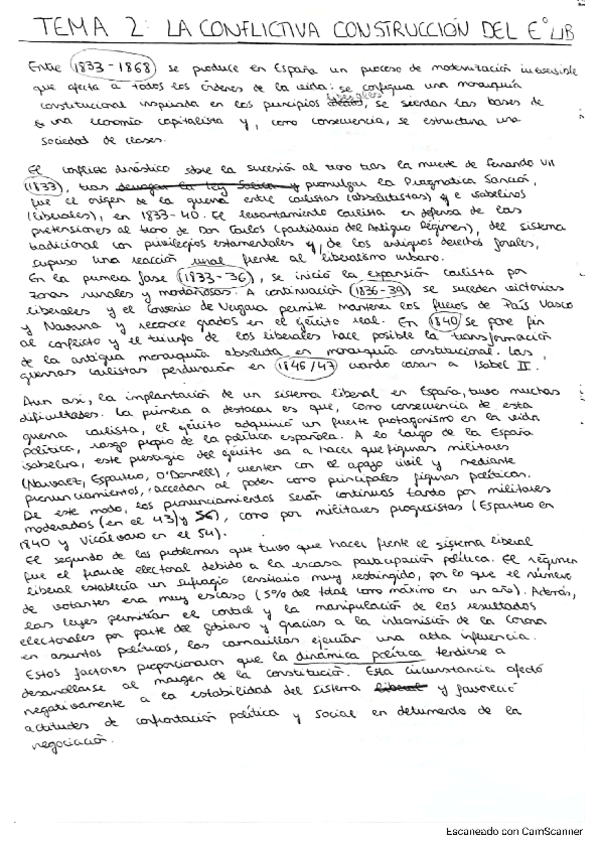 TEMA 2: LA CONFLICTIVA CONSTRUCCIÓN DEL Eº LIB
Entre 1833-1868 se produce en España un proceso de modernización irreversible
que afecta a todos los órdenes de la vida: se configura una monarquía
constitucional inspirada en los principios liberales, se sientan las bases de
una economía capitalista y, como consecuencia, se estructura una
sociedad de clases.
El conflicto dinástico sobre la sucesión al trono tras la muerte de Fernando VII
(1833), tras derogar la ley Sálica y promulgar la Pragmática Sanción,
fue el origen de la guerra entre carlistas (absolutistas) e isabelinos
(liberales), en 1833-40. El levantamiento carlista en defensa de las
pretensiones al trono de Don Carlos (partidario del Antiguo Régimen), del sistema
tradicional con privilegios estamentales y, de los antiguos derechos forales,
supuso una reacción rural frente al liberalismo urbano.
En la primera fase (1833-36), se inició la expansión carlista por
zonas rurales y montañosas. A continuación (1836-39) se suceden victorias
liberales y el Convenio de Vergara permite mantener los fueros de País Vasco
y Navarra y reconoce grados en el ejército real. En 1840 se pone fin
al conflicto y el triunfo de los liberales hace posible la transformación
de la antigua monarquía absoluta en monarquía constitucional. Las
guerras carlistas perdurarán en 1846/47 cuando casan a Isabel II.
Aun así, la implantación de un sistema liberal en España, tuvo muchas
dificultades. La primera a destacar es que, como consecuencia de esta
guerra carlista, el ejército adquirió un fuerte protagonismo en la vida
política, rasgo propio de la política española. A lo largo de la España
isabelina, este prestigio del ejército va a hacer que figuras militares
(Narvaez, Espartero, O'Donnell), cuenten con el apoyo civil y mediante
pronunciamientos, accedan al poder como principales figuras políticas.
De este modo, los pronunciamientos serán continuos tanto por militares
moderados (en el 43 y 56), como por militares progresistas (Espartero en
1840 y Vicálvaro en el 54).
El segundo de los problemas que tuvo que hacer frente el sistema liberal
fue el fraude electoral debido a la escasa participación política. El régimen
liberal establecía un sufragio censitario muy restringido, por lo que el número
de votantes era muy escaso (5% del total como máximo en un año). Además,
las leyes permitían el control y la manipulación de los resultados
electorales por parte del gobierno y gracias a la intromisión de la Corona
en asuntos políticos, las camarillas ejercían una alta influencia.
Estos factores proporcionaron que la dinámica política tendiese a
desarrollarse al margen de la constitución. Esta circunstancia afectó
negativamente a la estabilidad del sistema liberal y favoreció
actitudes de confrontación política y social en detrimento de la
negociación.
Escaneado con CamScanner